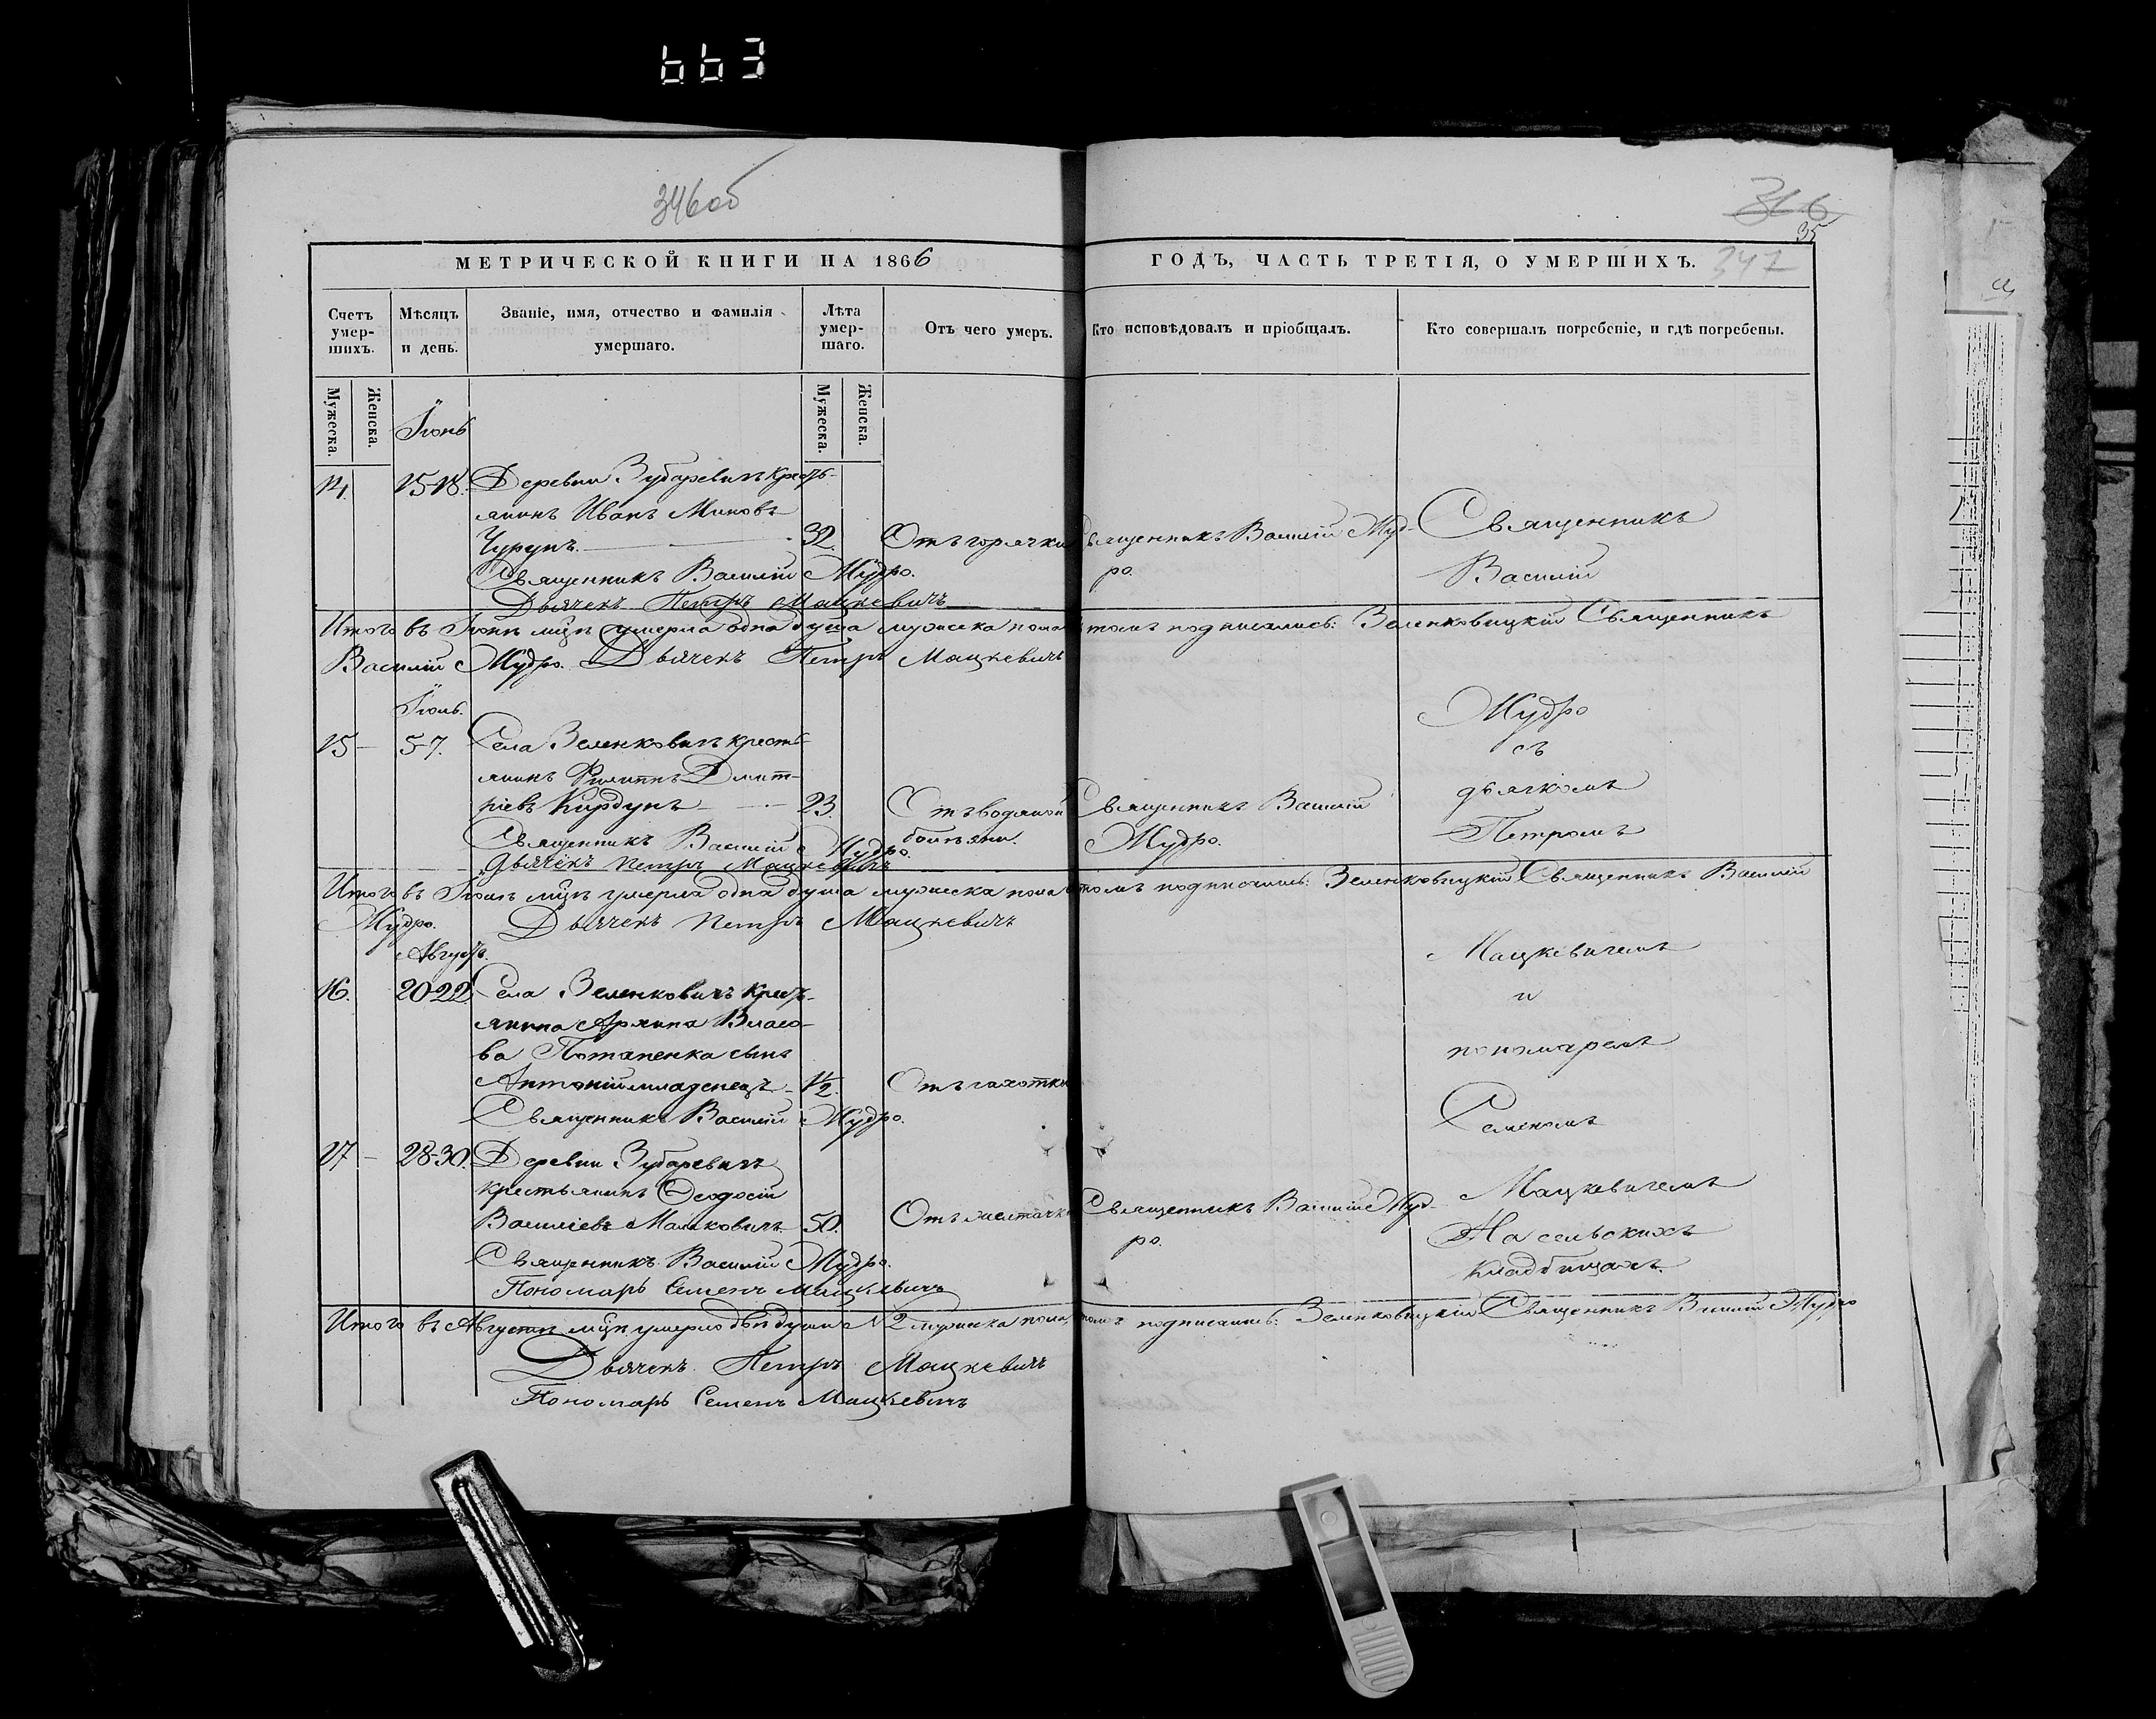 663
346об
366
35
347
МЕТРИЧЕСКОЙ КНИГИ НА 1866 ГОДЪ, ЧАСТЬ ТРЕТІЯ, О УМЕРШИХЪ.
Счетъ умер-
шихъ.
Мѣсяцъ
и день.
Званіе, имя, отчество и фамилія
умершаго.
Лѣта
умер-
шаго.
Отъ чего умеръ.
Кто исповѣдовалъ и пріобщалъ.
Кто совершалъ погребеніе, и гдѣ погребены.
Мужеска.
Женска.
Мужеска.
Женска.
Іюнь
14. 15-18. Деревни Зубаревичъ кресть-
янинъ Иванъ Миновъ
Чурунъ. 32. Отъ горячки Священникъ Василій Муд-
ро.
Священникъ Василій Мудро.
Дьячекъ Петръ Мацкевичъ
Итого въ Іюнѣ мцѣ умерла одна душа мужеска пола томъ подписались: Зеленковицкій Священникъ
Василій Мудро. Дьячекъ Петръ Мацкевичъ
Іюль.
15 — 5-7. Села Зеленковичъ кресть-
янинъ Филиппъ Дмит-
ріевъ Кирдунъ 23. Отъ водяной
болѣзни.
Священникъ Василій
Мудро.
Священникъ Василій Мудро.
Дьячекъ Петръ Мацкевичъ
Итого въ Іюлѣ мцѣ умерла одна душа мужеска пола томъ подписались: Зеленковицкій Священникъ Василій
Мудро. Дьячекъ Петръ Мацкевичъ
Августъ.
16. 20-22. Села Зеленковичъ кресть-
янина Архипа Власо-
ва Потапенка сынъ
Антоній младенецъ 1/2. Отъ сухотки
Священникъ Василій Мудро.
17 — 28-30. Деревни Зубаревичъ
крестьянинъ Ѳеодосій
Василіевъ Машковичъ 50. Отъ желтячки Священникъ Василій Муд-
ро.
Священникъ Василій Мудро.
Пономарь Семенъ Мацкевичъ
Итого въ Августѣ мцѣ умерло двѣ души № 2 мужеска пола, томъ подписались: Зеленковицкій Священникъ Василій Мудро
Дьячекъ Петръ Мацкевичъ
Пономарь Семенъ Мацкевичъ
Священникъ
Василій
Мудро
съ
дьячкомъ
Петромъ
Мацкевичемъ
и
пономаремъ
Семеномъ
Мацкевичемъ
На сельскихъ
кладбищахъ.